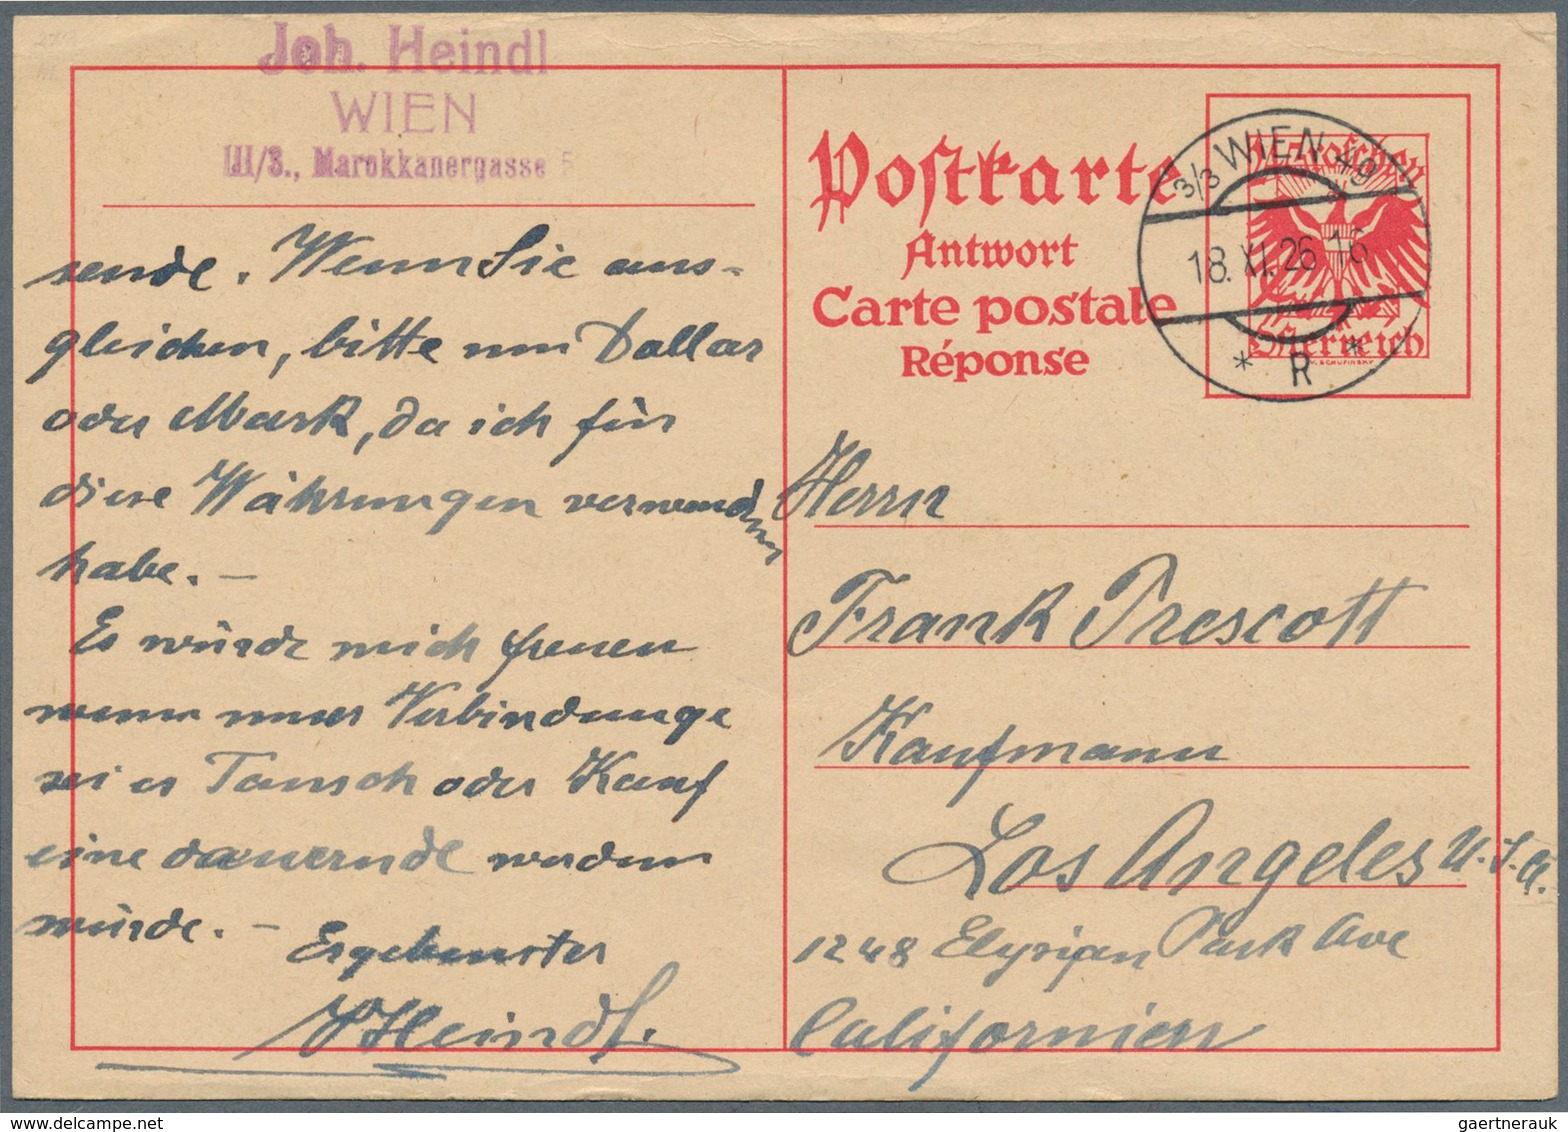 Joh. Heindl
WIEN
III/3., Marokkanergasse 5
sende. Wenn Sie aus-
gleichen, bitte nur Dollar
oder Mark, da ich für
diese Währungen verwendung
habe. –
Es würde mich freuen
wenn unser Verbindunge
sei es Tausch oder Kauf
eine dauernde werden
würde. –
Ergebenster
JHeindl.
Postkarte
Antwort
Carte postale
Réponse
Groschen
Österreich
SCHUFINSKY
3/3 WIEN 49
18. XI. 26 16
* R *
Herrn
Frank Prescott
Kaufmann
Los Angeles U.S.A.
1248 Elyrian Park Ave
Californien
gaertnerauk @ delcampe.net